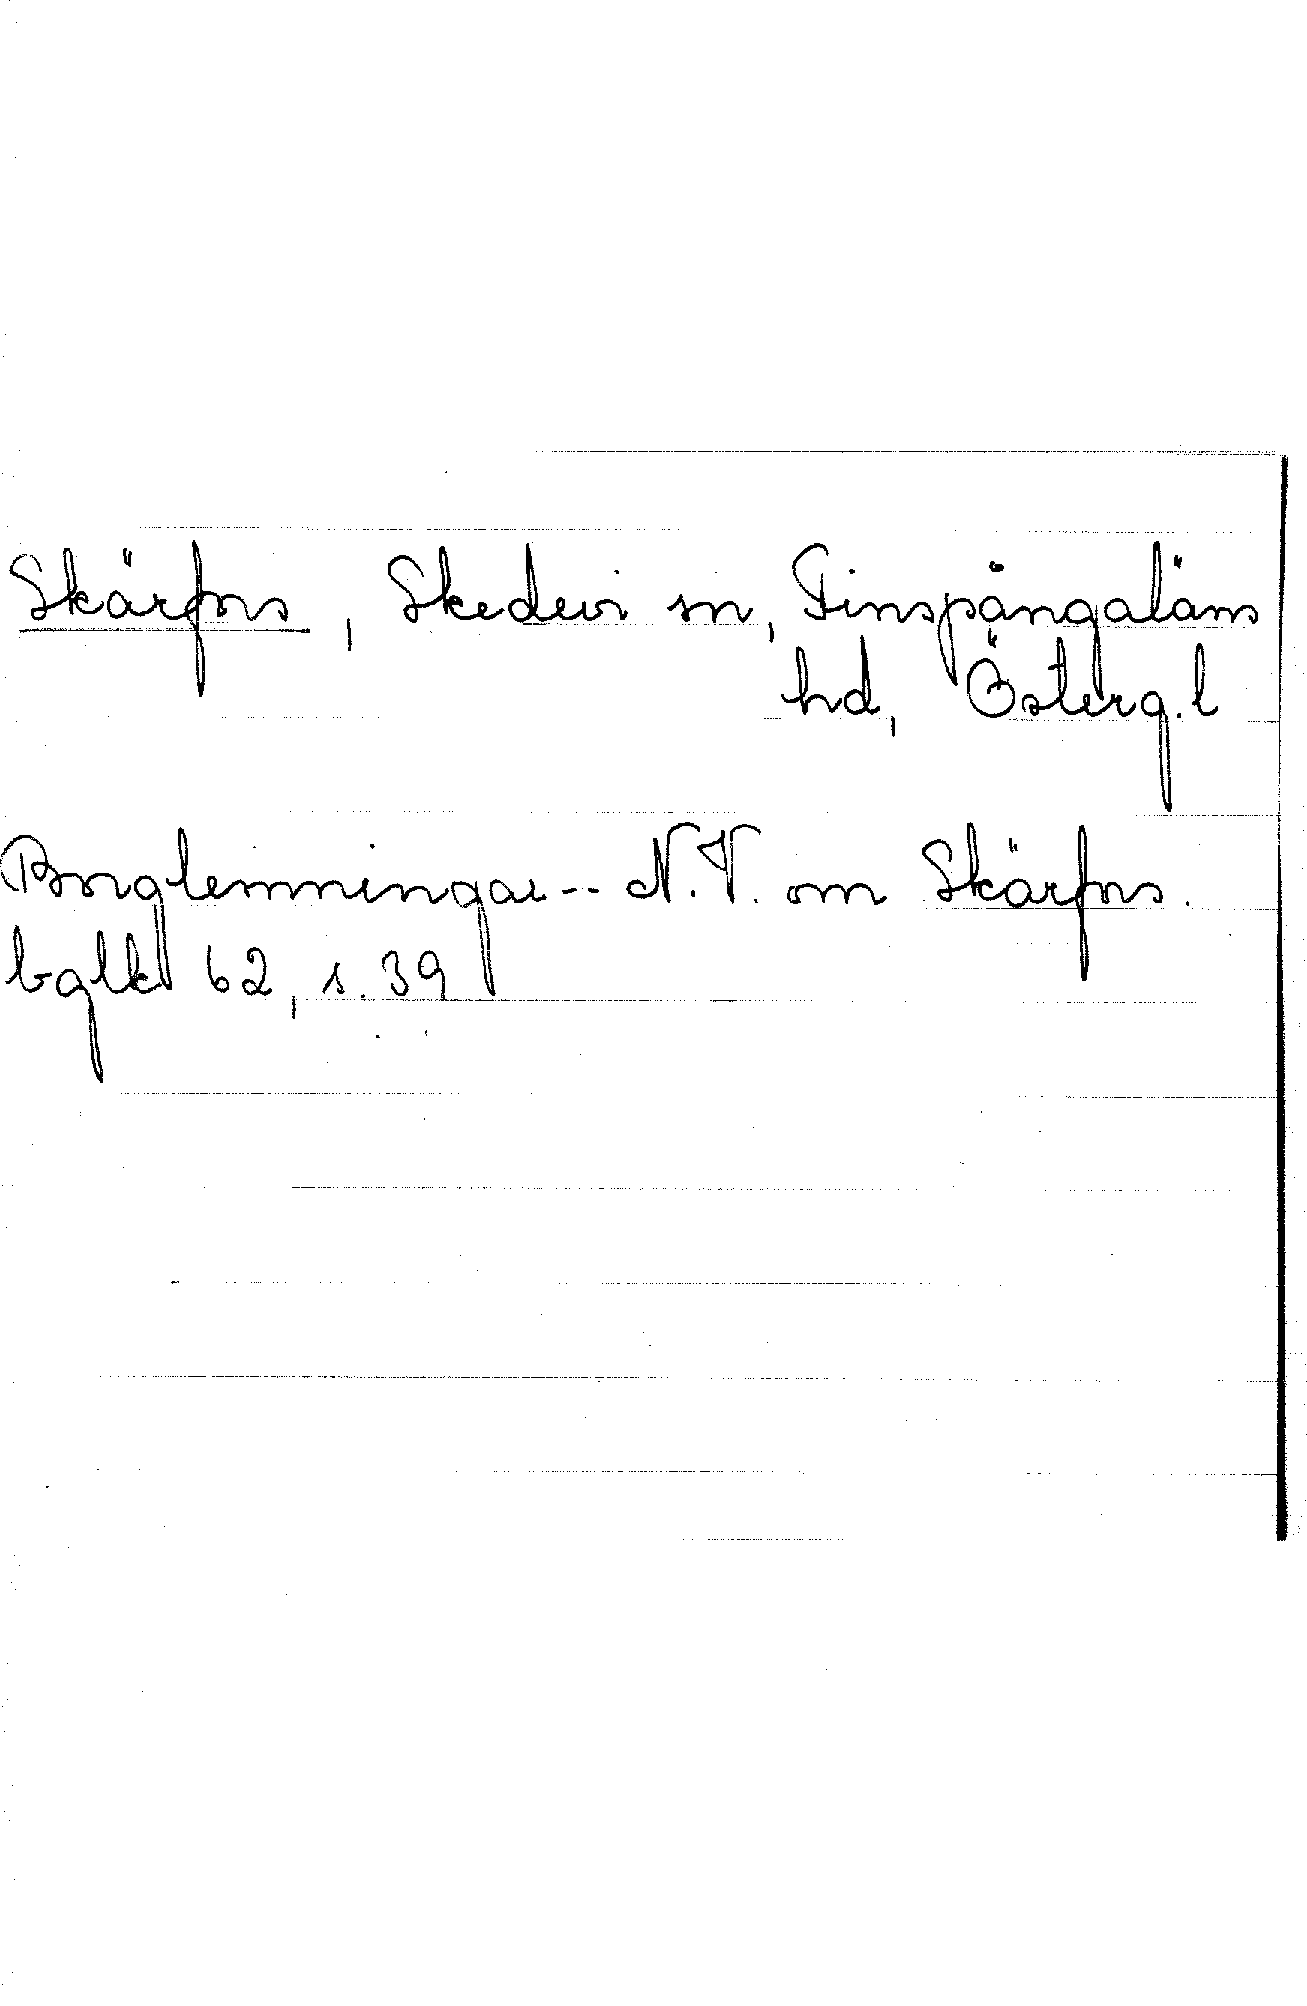 Skärfors, Skedevi sn, Finspångaläns
hd, Österg.l
Borglämningar -- N.V. om Skärfors.
bglk 62, s. 39